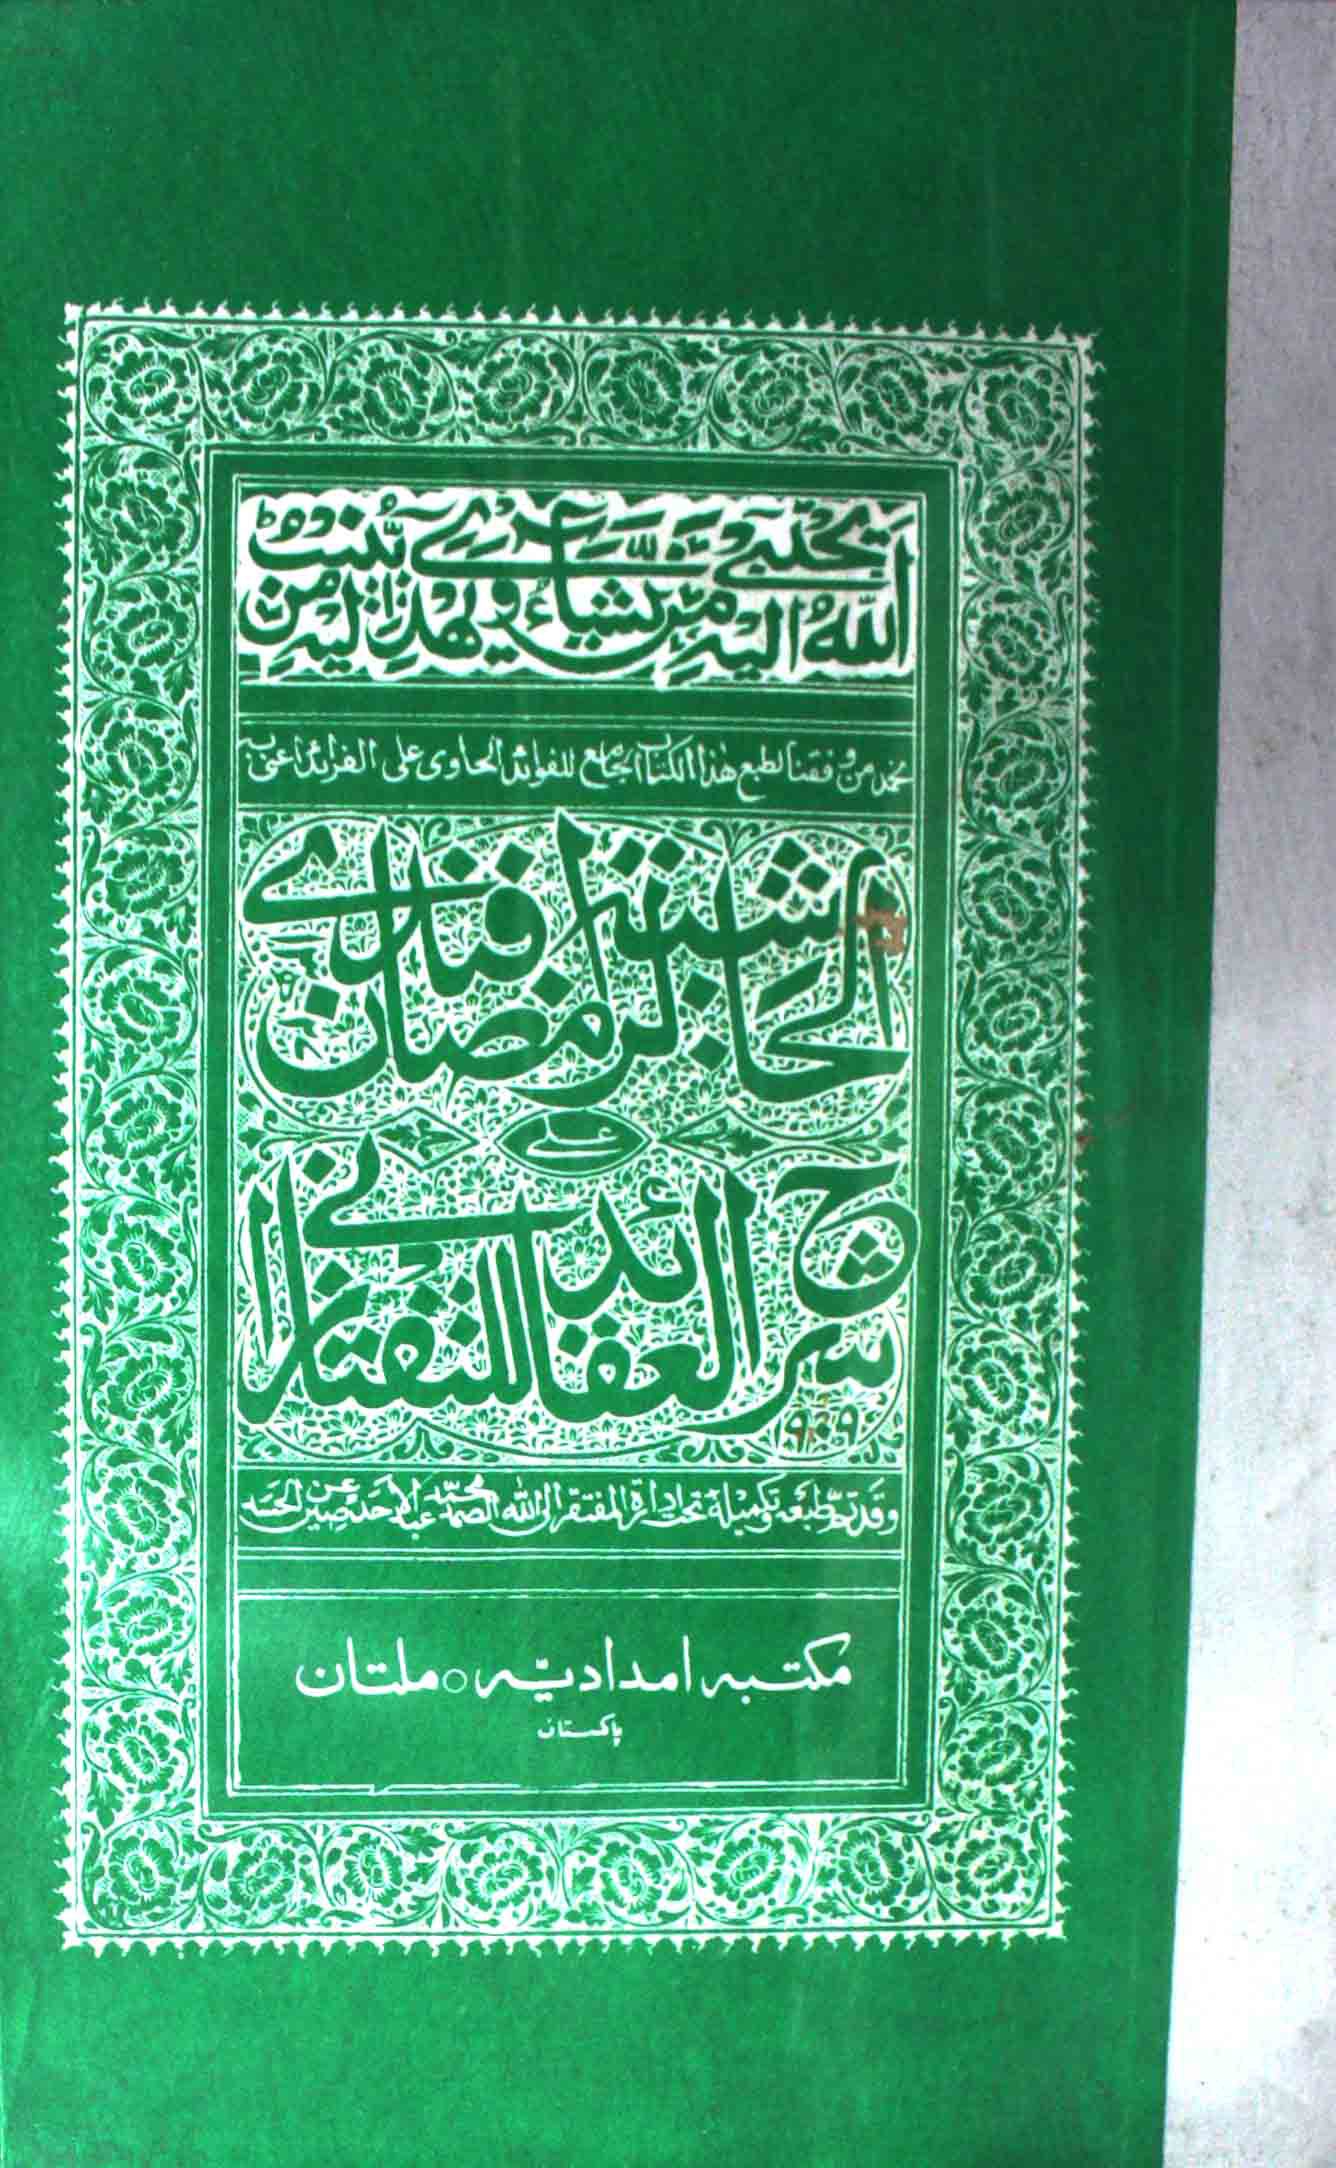 الله يجتبي إليه من يشاء ويهدي إليه من ينيب
نحمد من وفقنا لطبع هذا الكتاب الجامع للفوائد الحاوى على الفرائد اعنى به
الحاشية لرمضان افندي
على
شرح العقائد للتفتازاني
وقد تم طبعه وتكميله تحت ادارة المفتقر الى الله الصمد محمد عبد الاحد صين عن الحسد
مكتبه امدادیّه ٥ ملتان
پاکستان